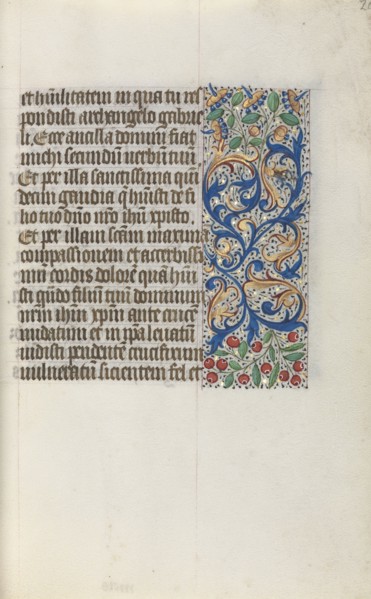 et hũilitatem in qua tu res
pondisti archangelo gabrie
li. Ecce ancilla domini fiat
michi secundũ verbũ tuũ.
Et per illa sanctissima quĩ
decim gaudia q̃ hũisti de fi
lio tuo dño nr̃o ihũ xp̃isto.
Et per illam scãm maximã
compassionem et acerbissi
mũ cordis dolorẽ quã hũi
sti qũdo filiũ tuũ dominum
nr̃m ihm̃ xp̃m ante crucẽ
nudatum et in ip̃a leuatũ
uidisti pendentẽ crucifixum
uulneratũ sicientem fel et